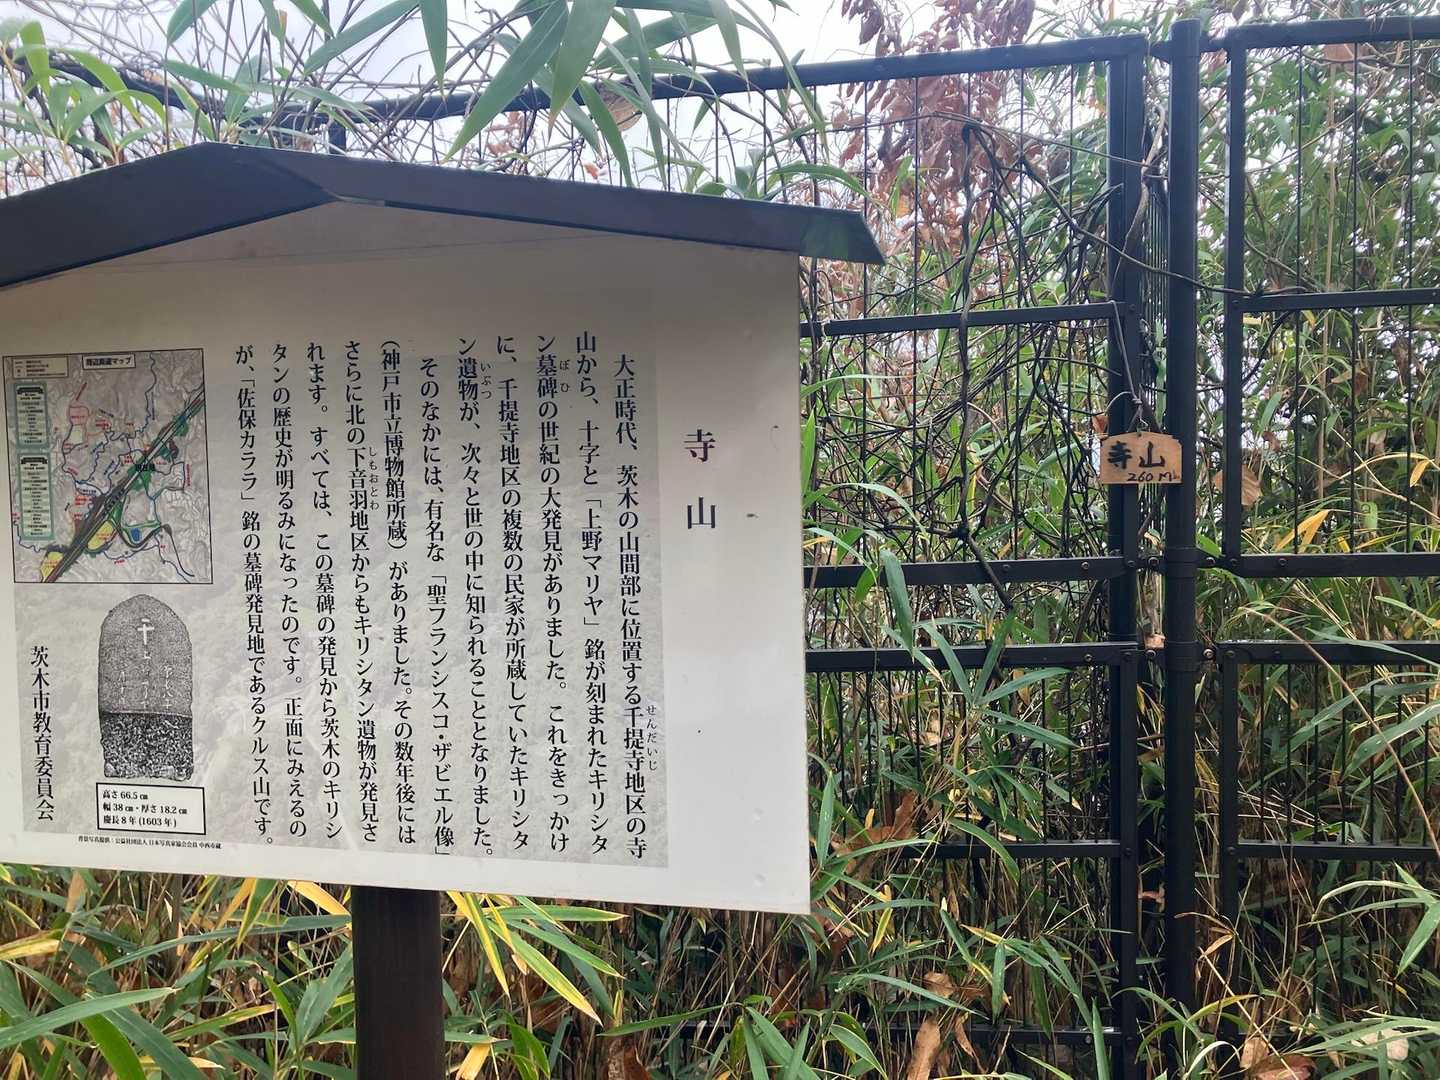 寺山
大正時代、茨木の山間部に位置する千提寺地区の寺
せんだいじ
山から、十字と「上野マリヤ」銘が刻まれたキリシタ
ン墓碑の世紀の大発見がありました。これをきっかけ
ぼひ
に、千提寺地区の複数の民家が所蔵していたキリシタ
ン遺物が、次々と世の中に知られることとなりました。
いぶつ
そのなかには、有名な「聖フランシスコ・ザビエル像」
（神戸市立博物館所蔵）がありました。その数年後には
さらに北の下音羽地区からもキリシタン遺物が発見さ
しもおとわ
れます。すべては、この墓碑の発見から茨木のキリシ
タンの歴史が明るみになったのです。正面にみえるの
が、「佐保カララ」銘の墓碑発見地であるクルス山です。
茨木市教育委員会
周辺関連マップ
高さ 66.5 ㎝
幅 38 ㎝・厚さ 18.2 ㎝
慶長 8 年 (1603 年)
背景写真提供：公益社団法人 日本写真家協会会員 中西市蔵
寺山
260M